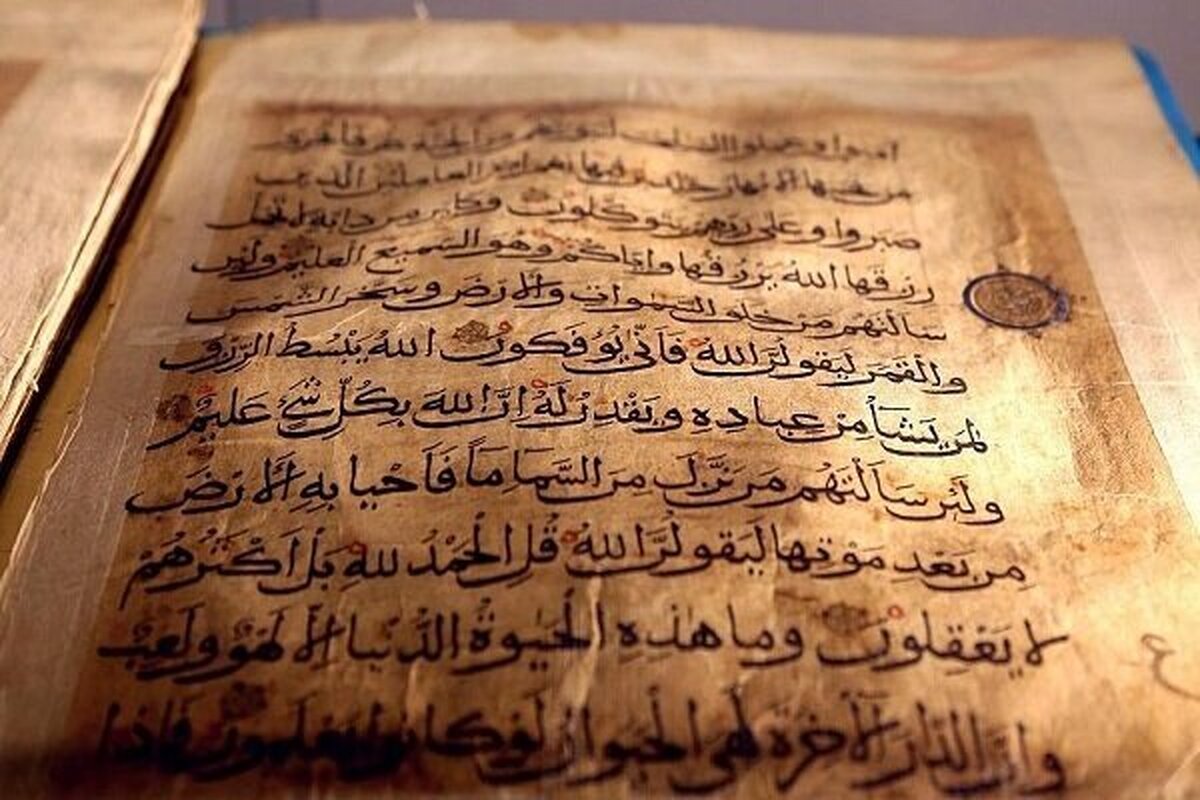 آمنوا وعملوا الصالحات لنبوئنهم من الجنة غرفا تجري
من تحتها الانهار خالدين فيها نعم اجر العاملين الذين
صبروا وعلى ربهم يتوكلون وكاين من دابة لا تحمل
رزقها الله يرزقها واياكم وهو السميع العليم ولئن
سالتهم من خلق السموات والارض وسخر الشمس
والقمر ليقولن الله فانى يوفكون الله يبسط الرزق
لمن يشا من عباده ويقدر له ان الله بكل شي عليم
ولئن سالتهم من نزل من السما ما فاحيا به الارض
من بعد موتها ليقولن الله قل الحمد لله بل اكثرهم
لا يعقلون وما هذه الحيوة الدنيا الا لهو ولعب
وان الدار الاخرة لهي الحيوان لو كانوا يعلمون فاذا
ع